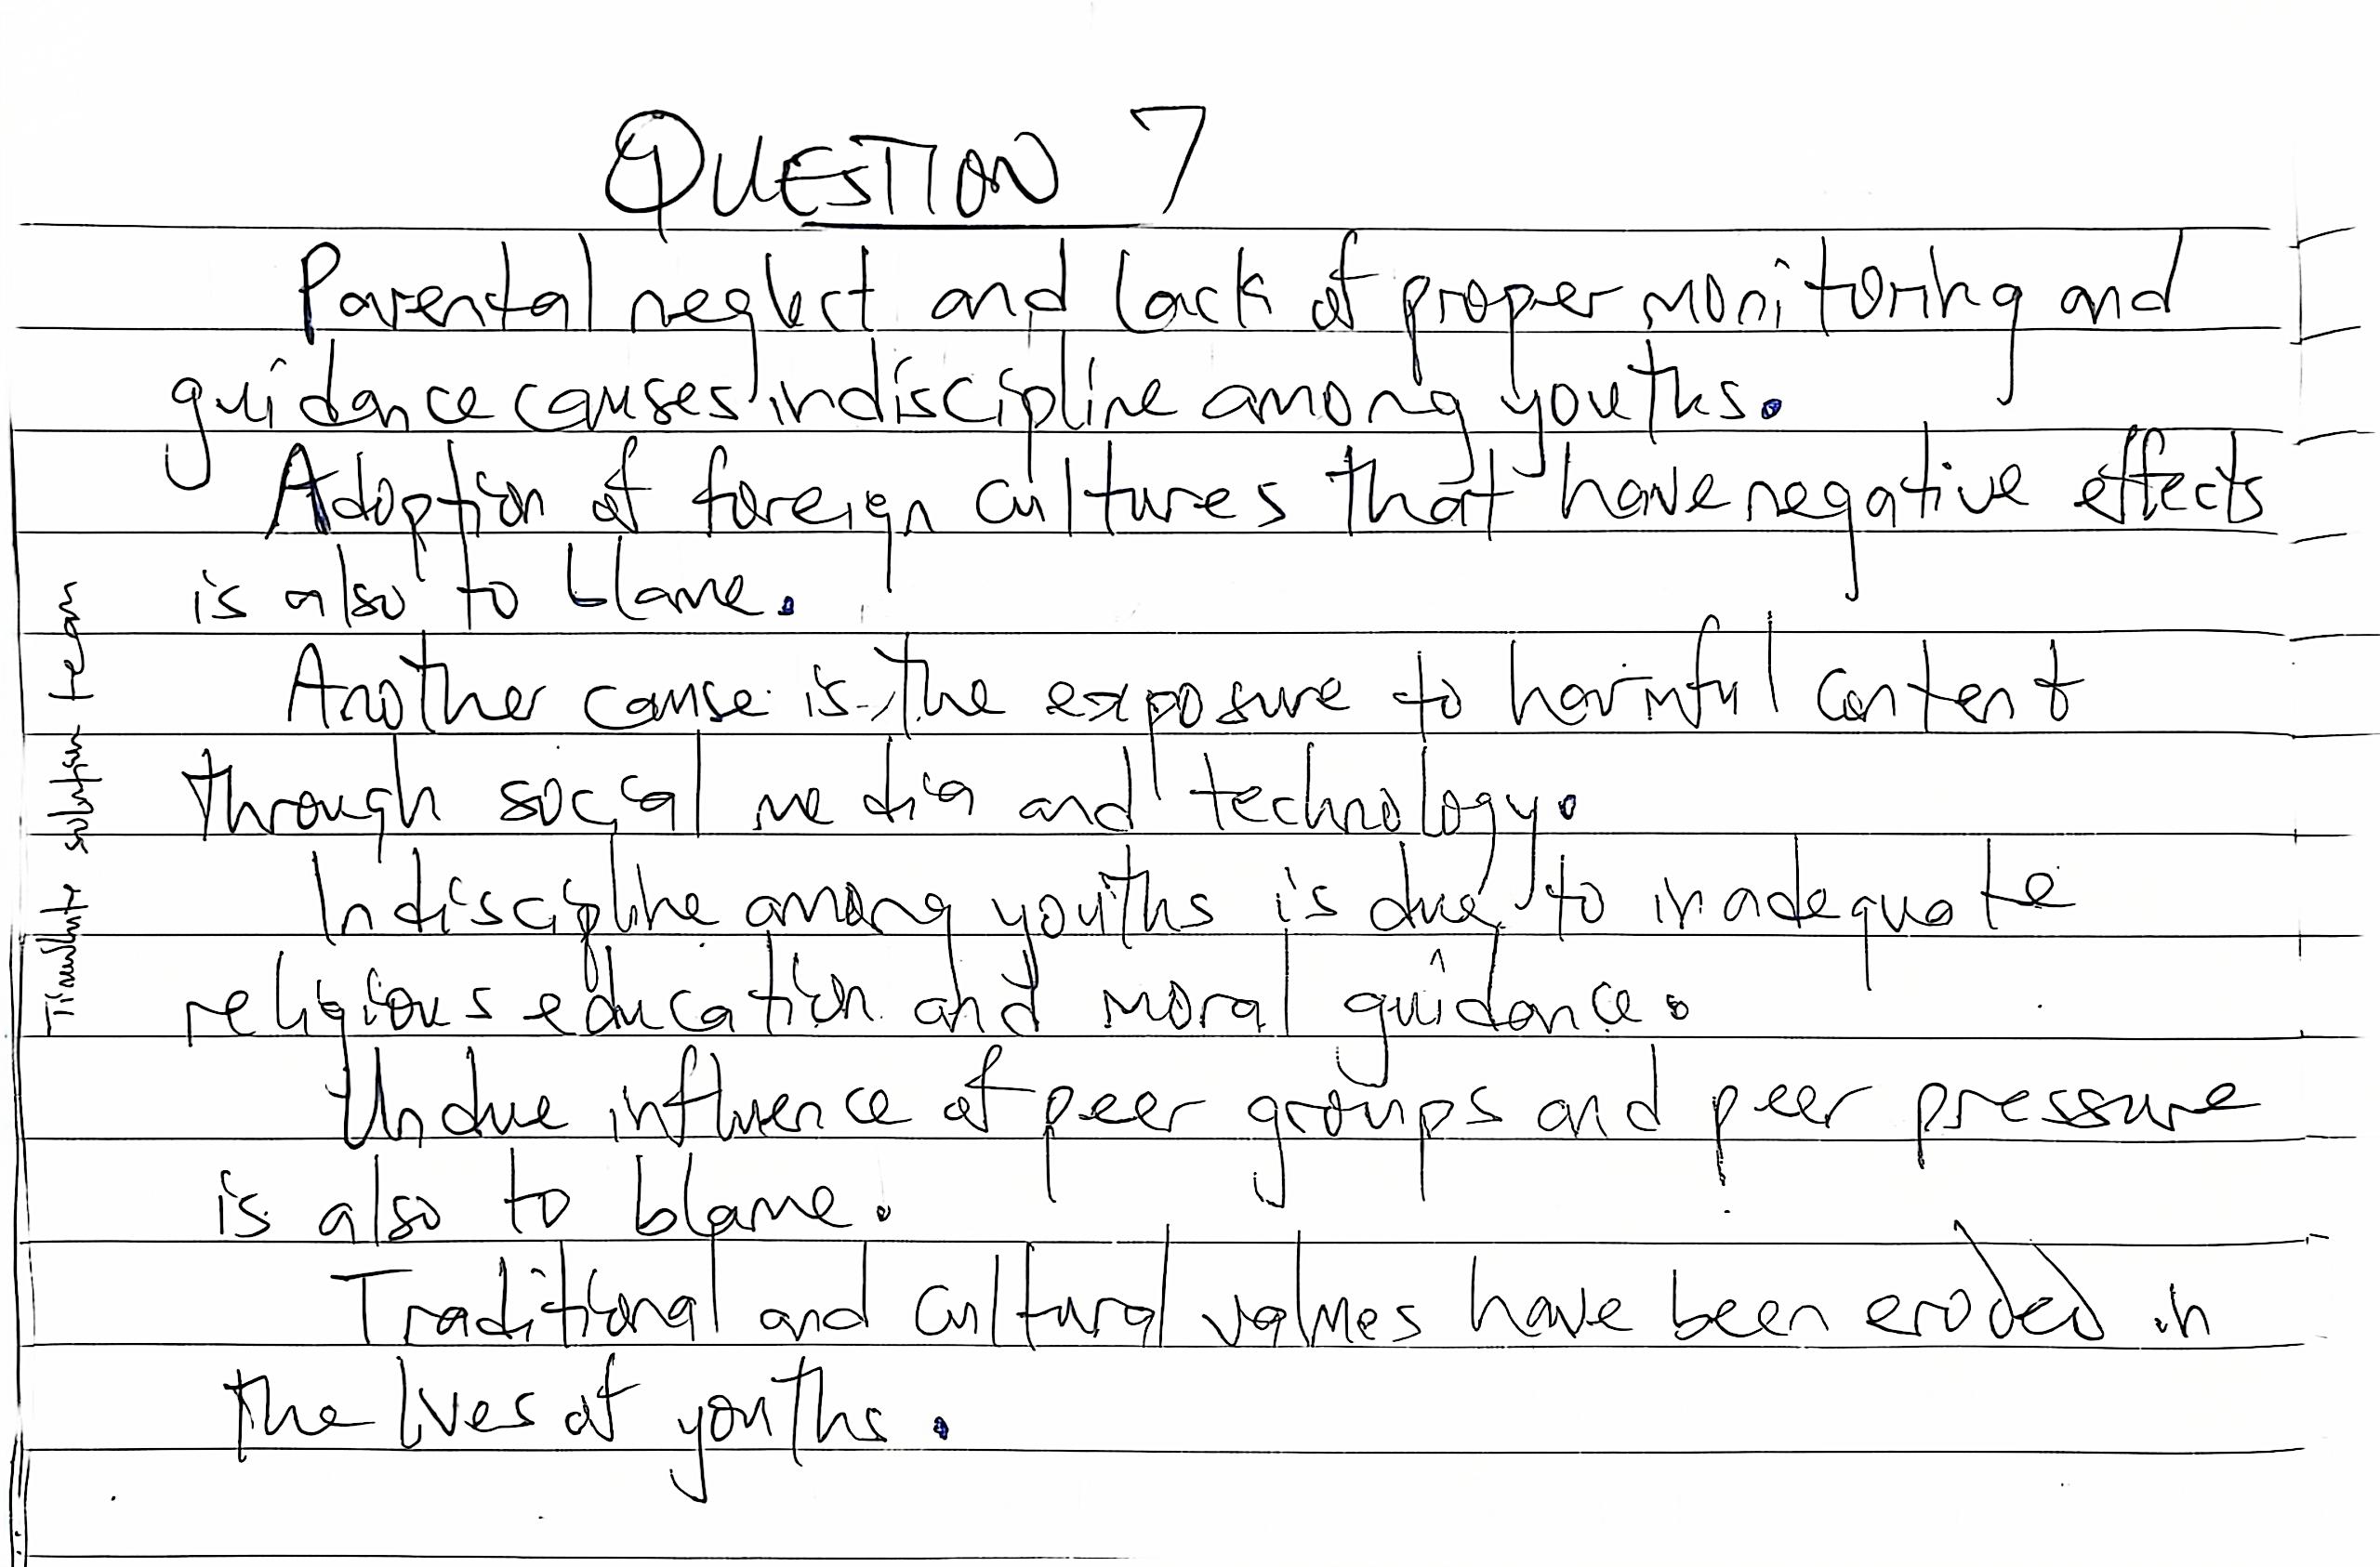 QUESTION 7
Parental neglect and lack of proper monitoring and
guidance causes indiscipline among youths.
Adoption of foreign cultures that have negative effects
is also to blame.
Another cause is the exposure to harmful content
through social media and technology.
Indiscipline among youths is due to inadequate
religious education and moral guidance.
Undue influence of peer groups and peer pressure
is also to blame.
Traditional and cultural values have been eroded in
the lives of youths.
solution team